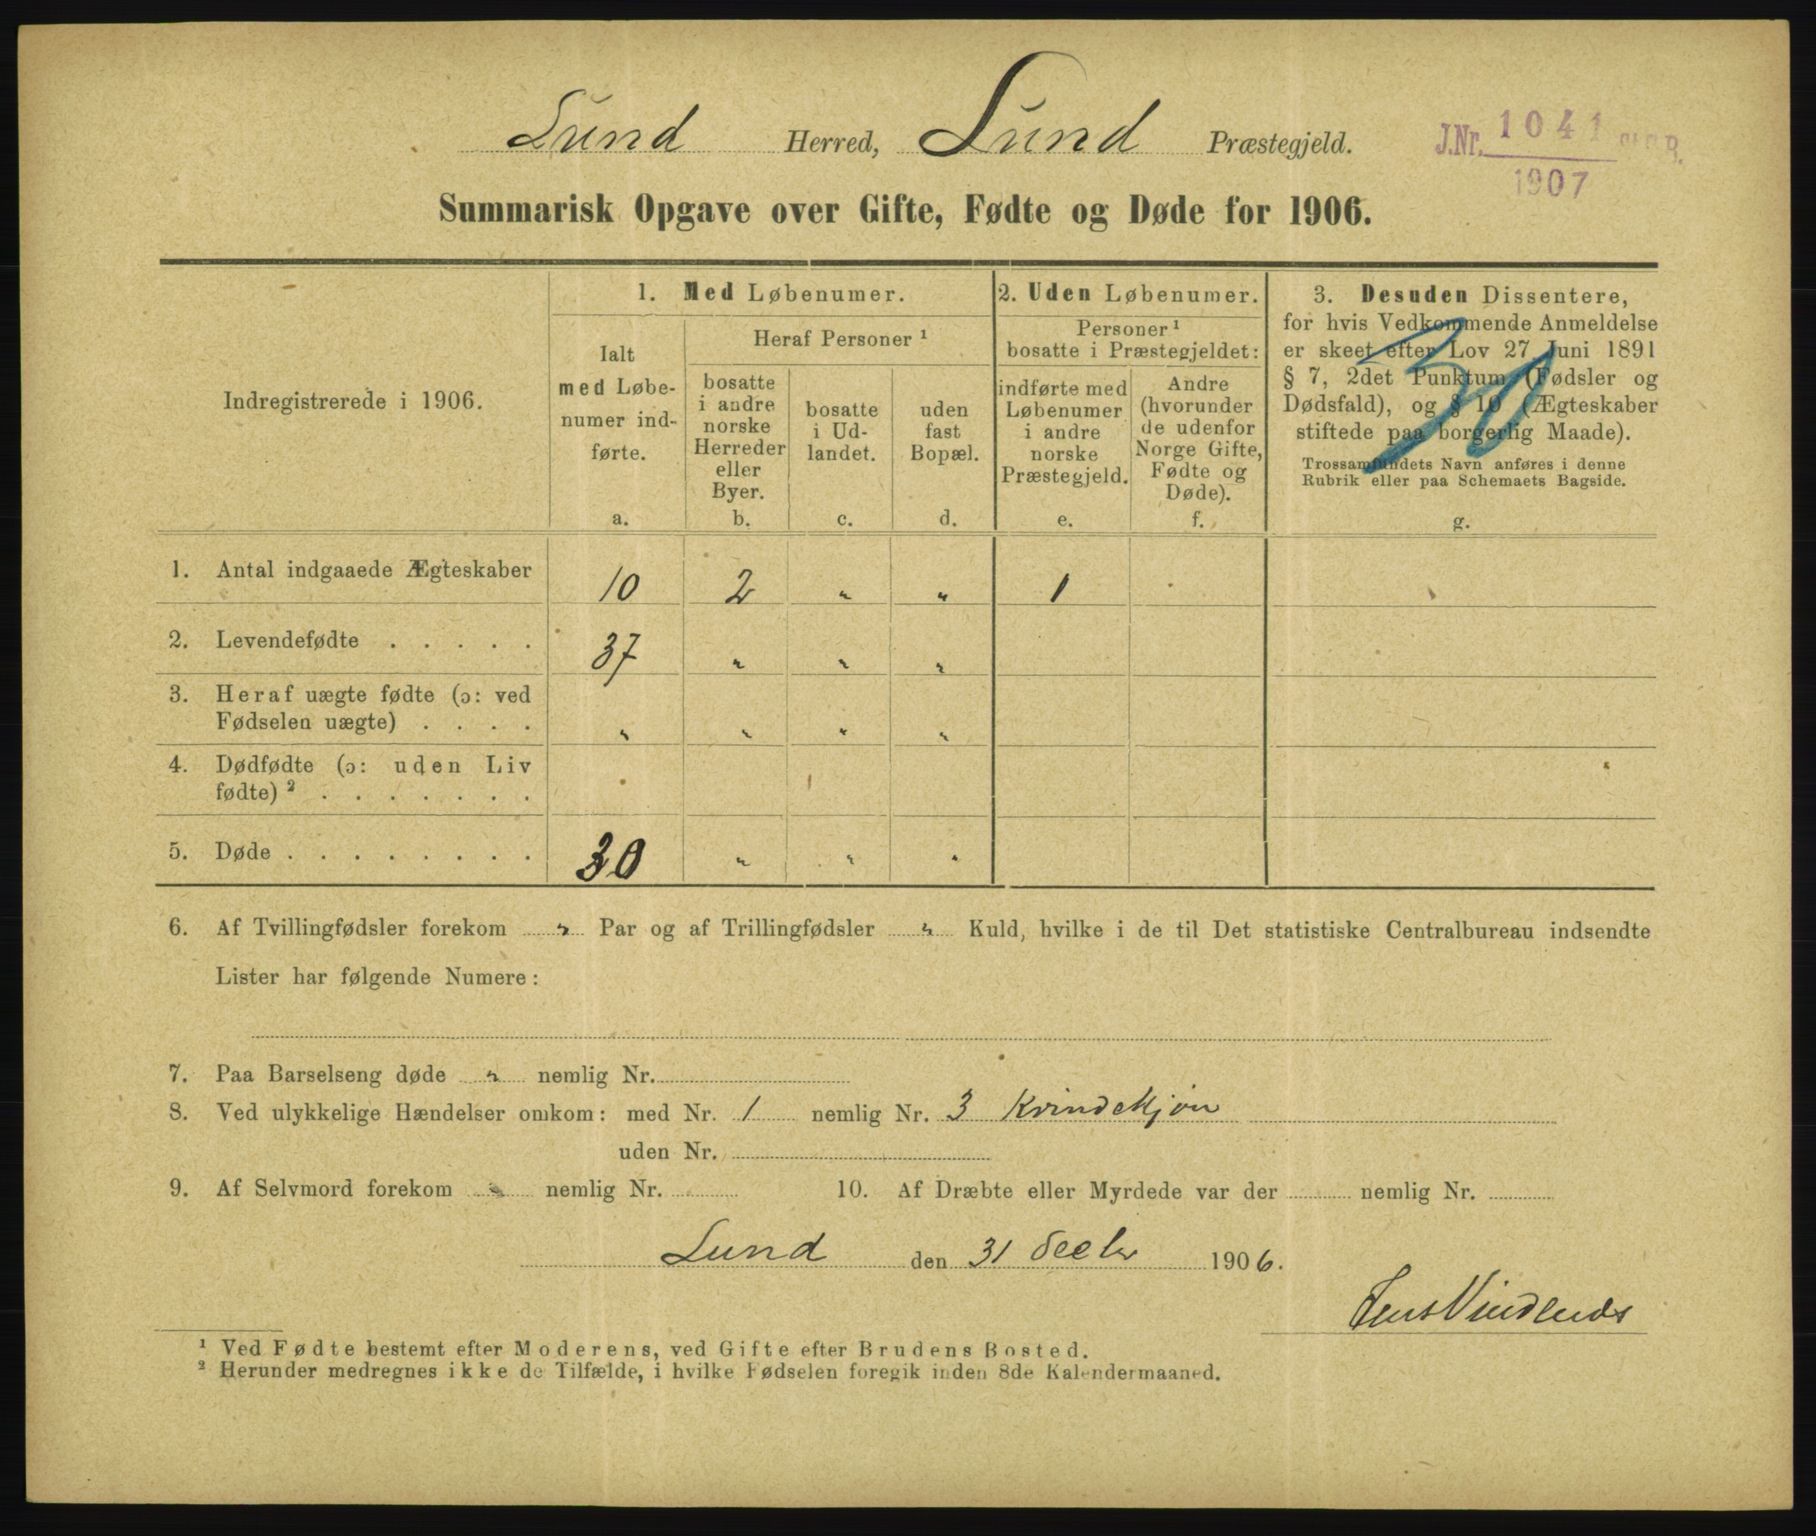 Lund Herred, Lund Præstegjeld.
J.Nr. 1041
1907
Summarisk Opgave over Gifte, Fødte og Døde for 1906.
Indregistrerede i 1906.
1. Med Løbenumer.
Ialt
med Løbe-
numer ind-
førte.
a.
Heraf Personer ¹
bosatte
i andre
norske
Herreder
eller
Byer.
b.
bosatte
i Ud-
landet.
c.
uden
fast
Bopæl.
d.
2. Uden Løbenumer.
Personer ¹
bosatte i Præstegjeldet:
indførte med
Løbenumer
i andre
norske
Præstegjeld.
e.
Andre
(hvorunder
de udenfor
Norge Gifte,
Fødte og
Døde).
f.
3. Desuden Dissentere,
for hvis Vedkommende Anmeldelse
er skeet efter Lov 27 Juni 1891
§ 7, 2det Punktum (Fødsler og
Dødsfald), og § 10 (Ægteskaber
stiftede paa borgerlig Maade).
Trossamfundets Navn anføres i denne
Rubrik eller paa Schemaets Bagside.
g.
30
1. Antal indgaaede Ægteskaber 10 2 " " 1
2. Levendefødte . . . . . 37 " " "
3. Heraf uægte fødte (ɔ: ved
Fødselen uægte) . . . . " " " "
4. Dødfødte (ɔ: uden Liv
fødte) ² . . . . . . .
5. Døde . . . . . . . . 30 " " "
6. Af Tvillingfødsler forekom " Par og af Trillingfødsler " Kuld, hvilke i de til Det statistiske Centralbureau indsendte
Lister har følgende Numere:
7. Paa Barselseng døde " nemlig Nr.
8. Ved ulykkelige Hændelser omkom: med Nr. 1 nemlig Nr. 3 Kvindekjøn
uden Nr.
9. Af Selvmord forekom " nemlig Nr. 10. Af Dræbte eller Myrdede var der nemlig Nr.
Lund den 31 Decbr 1906.
¹ Ved Fødte bestemt efter Moderens, ved Gifte efter Brudens Bosted.
² Herunder medregnes ikke de Tilfælde, i hvilke Fødselen foregik inden 8de Kalendermaaned.